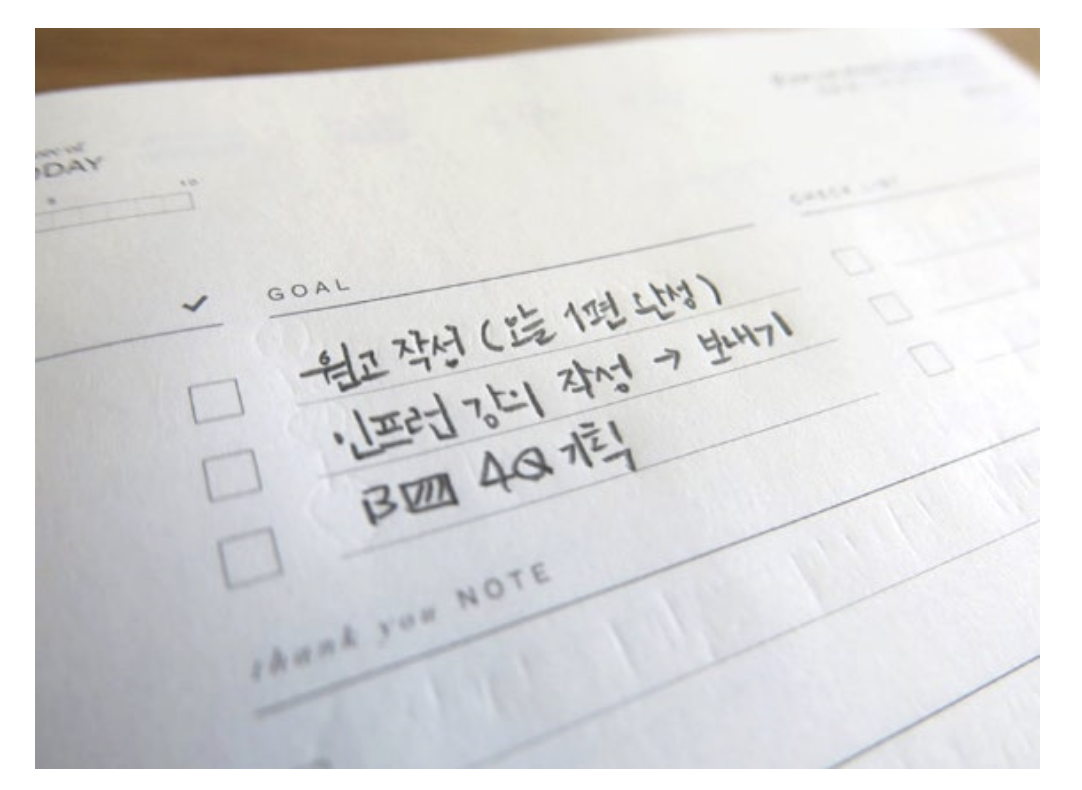 ODAY
10
GOAL
CHECK LIST
원고 작성 (오늘 1편 완성)
인프런 강의 작성 → 보내기
B 4Q 기획
thank you NOTE